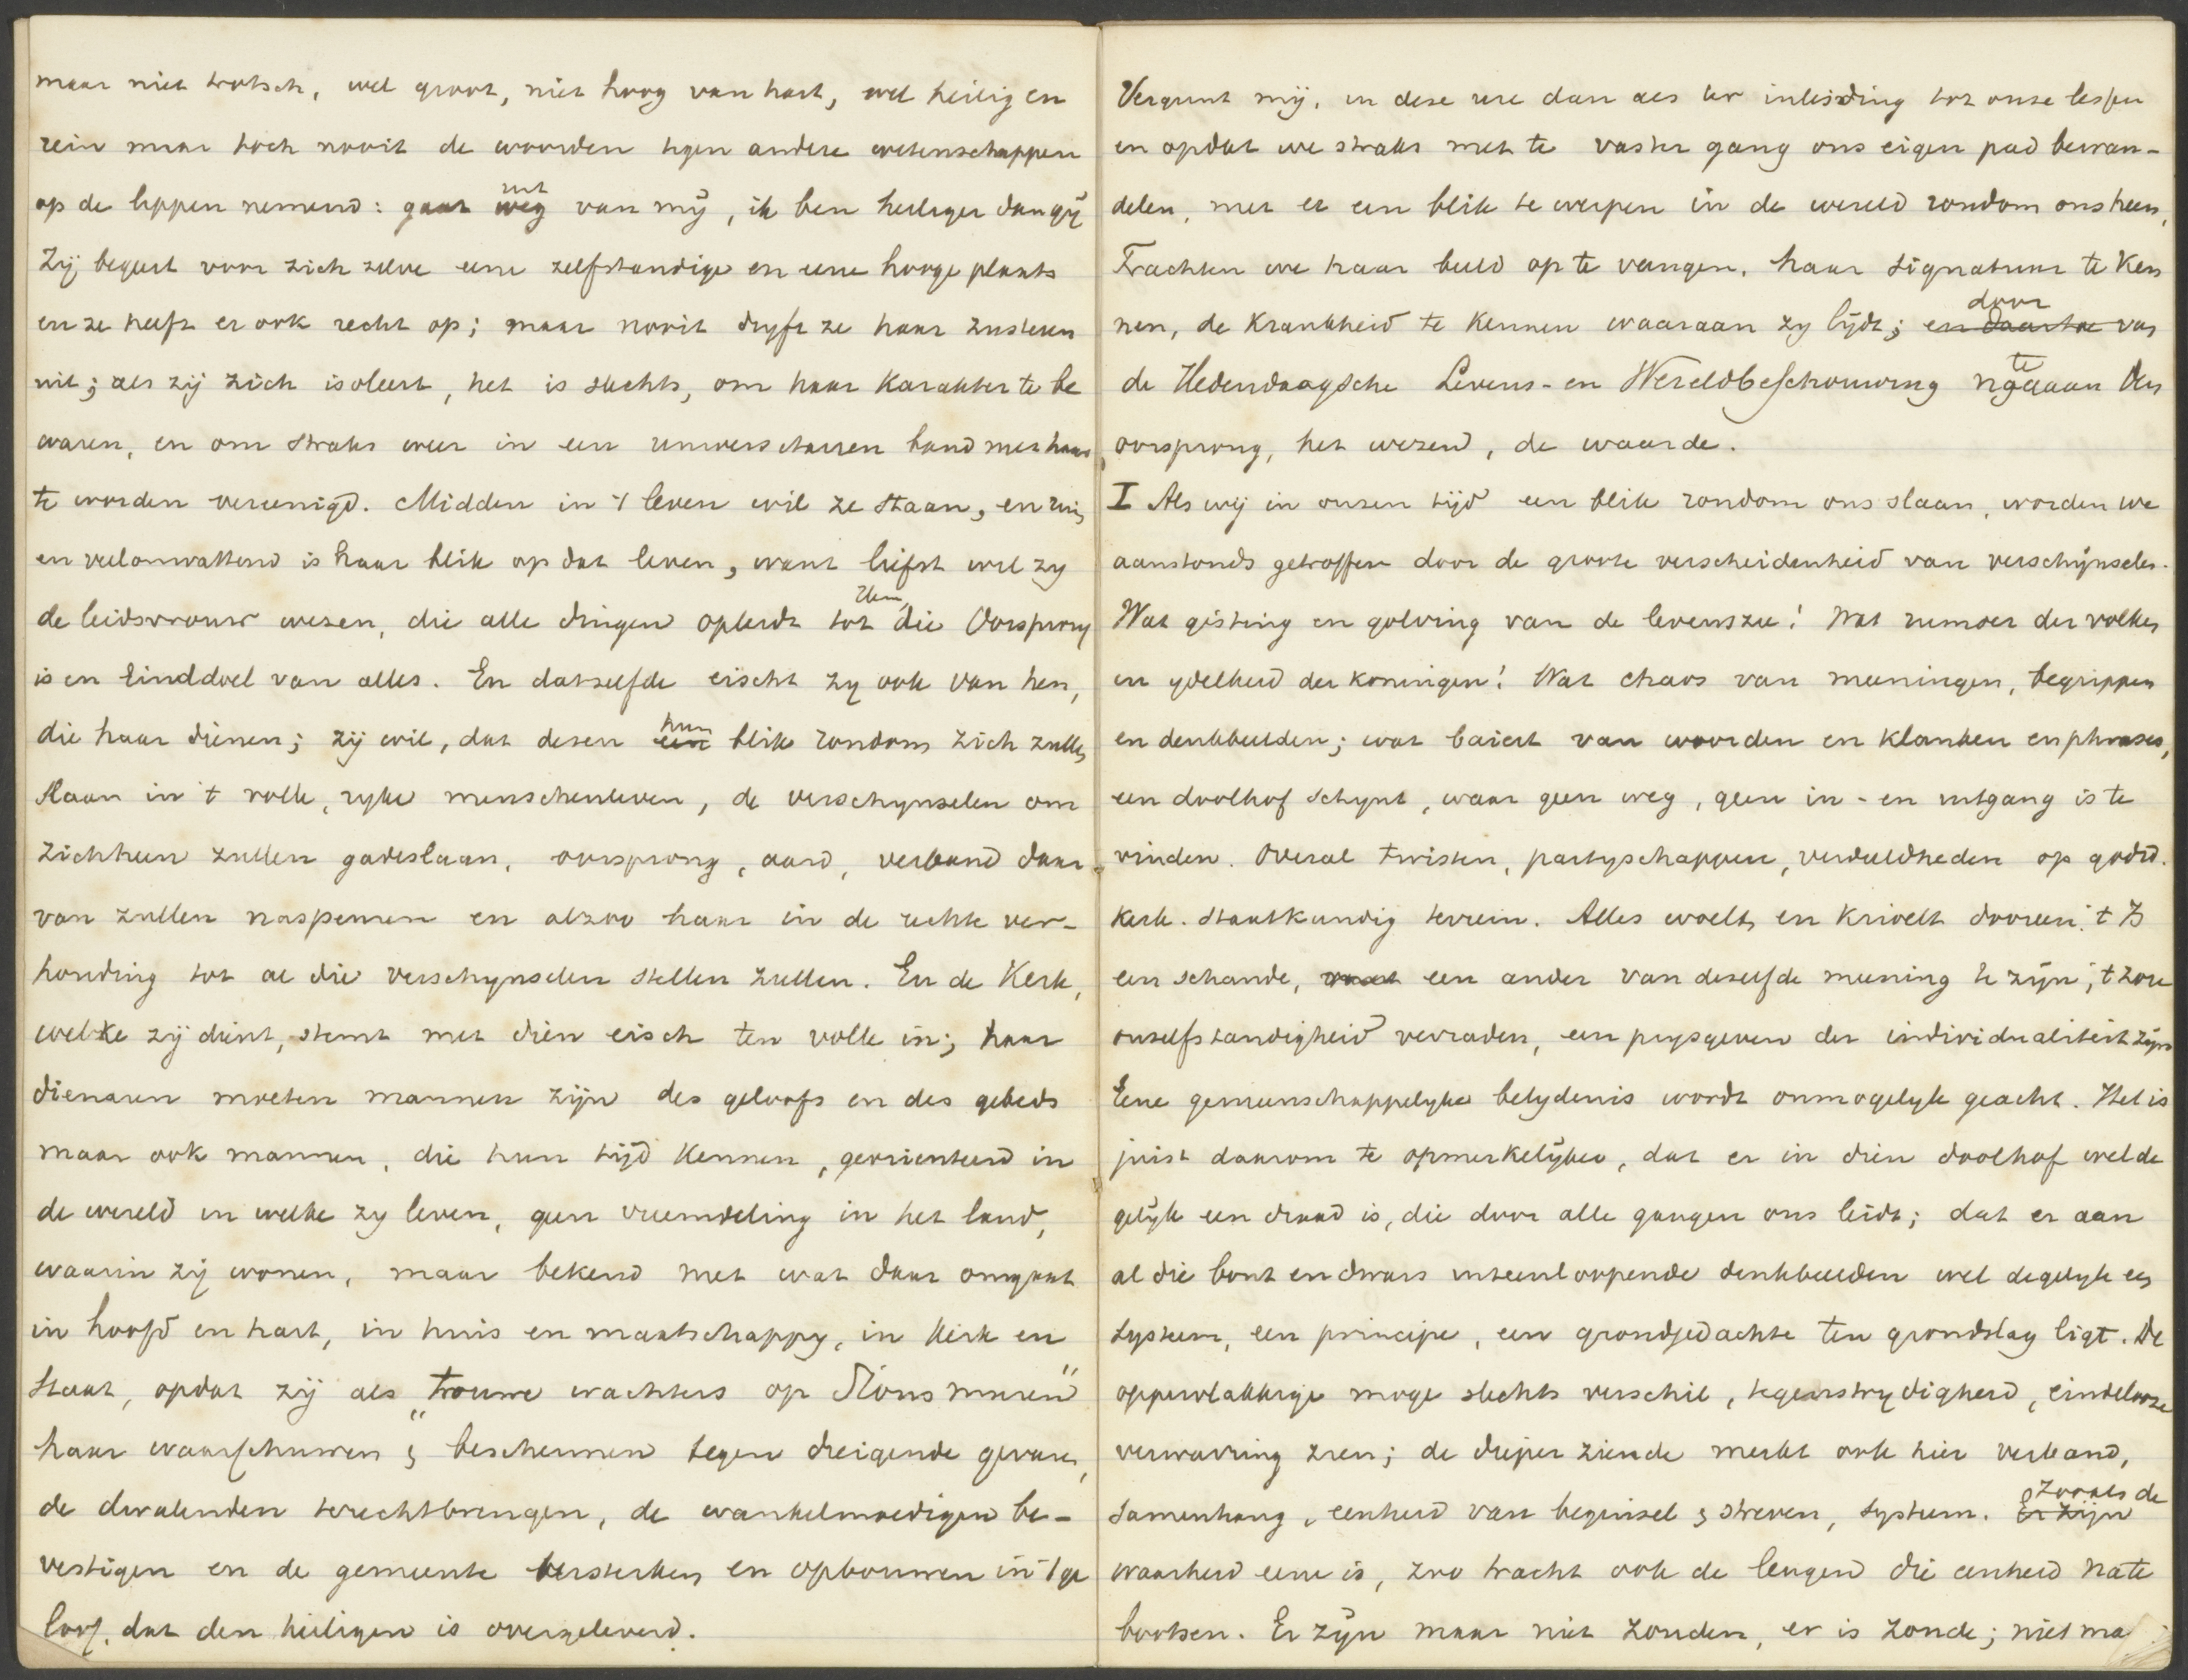 maar niet trotsch, wel groot, niet hoog van hart, wel heilig en
rein maar toch nooit de woorden tegen andere wetenschappen
op de lippen nemend: gaat weg uit van mij, ik ben heiliger dan gij
Zij begeert voor zich zelve eene zelfstandige en eene hooge plaats
en ze heeft er ook recht op; maar nooit dryft ze haar zusteren
uit; als zij zich isoleert, het is slechts, om haar karakter te be
waren, en om straks weer in een universitairen band met haar
te worden vereenigd. Midden in 't leven wil ze staan, en ruim
en veelomvattend is haar blik op dat leven, want liefst wil zy
de leidsvrouw wezen, die alle dingen opleidt tot Hem, die Oorsprong
is en Einddoel van alles. En datzelfde eischt zy ook van hen,
die haar dienen; zij wil, dat dezen een hun blik rondom zich zullen
slaan in 't volle, ryke menschenleven, de verschynselen om
zich heen zullen gadeslaan, oorsprong, aard, verband daar
van zullen naspeuren en alzoo haar in de rechte ver-
houding tot al die verschynselen stellen zullen. En de Kerk,
welke zij dient, stemt met dien eisch ten volle in; haar
dienaren moeten mannen zijn des geloofs en des gebeds
maar ook mannen, die hun tijd kennen, georienteerd in
de wereld in welke zy leven, geen vreemdeling in het land,
waarin zij wonen, maar bekend met wat daar omgaat
in hoofd en hart, in huis en maatschappy, in kerk en
Staat, opdat zij als "trouwe wachters op Sions muren"
haar waarschuwen & beschermen tegen dreigende gevaren,
de dwalenden terechtbrengen, de wankelmoedigen be-
vestigen en de gemeente versterken en opbouwen in 't ge
loof, dat den heiligen is overgeleverd.
Vergunt mij, in deze ure dan als ter inleiding tot onze lessen
en opdat we straks met te vaster gang ons eigen pad bewan-
delen, met u een blik te werpen in de wereld rondom ons heen,
Trachten we haar beeld op te vangen, haar signatuur te ken
nen, de krankheid te kennen waaraan zy lijdt; en daartoe door van
de Hedendaagsche Levens- en Wereldbeschouwing na te gaan den
oorsprong, het wezen, de waarde.
I Als wij in onzen tijd een blik rondom ons slaan, worden we
aanstonds getroffen door de groote verscheidenheid van verschijnselen.
Wat gisting en golving van de levenszee! Wat rumoer der volken
en ydelheid der koningen! Wat chaos van meeningen, begrippen
en denkbeelden; wat baiert van woorden en klanken en phrases,
een doolhof schynt, waar geen weg, geen in- en uitgang is te
vinden. Overal twisten, partyschappen, verdeeldheden op godsd.
kerk. staatkundig terrein. Alles woelt en krioelt dooreen. 't Is
een schande, een ander van dezelfde meening te zijn; 't zou
onzelfstandigheid verraden, een prysgeven der individualiteit zijn
Eene gemeenschappelyke belydenis wordt onmogelyk geacht. Het is
juist daarom te opmerkelijker, dat er in dien doolhof wel de
gelijk een draad is, die door alle gangen ons leidt; dat er aan
al die bont en dwars uiteenloopende denkbeelden wel degelyk een
systeem, een principe, een grondgedachte ten grondslag ligt. De
oppervlakkige moge slechts verschil, tegenstrydigheid, eindelooze
verwarring zien; de dieper ziende merkt ook hier verband,
samenhang, eenheid van beginsel & streven, systeem. Er zijn Zooals de
waarheid eene is, zoo tracht ook de leugen die eenheid na te
bootsen. Er zijn maar niet zonden, er is zonde; niet ma